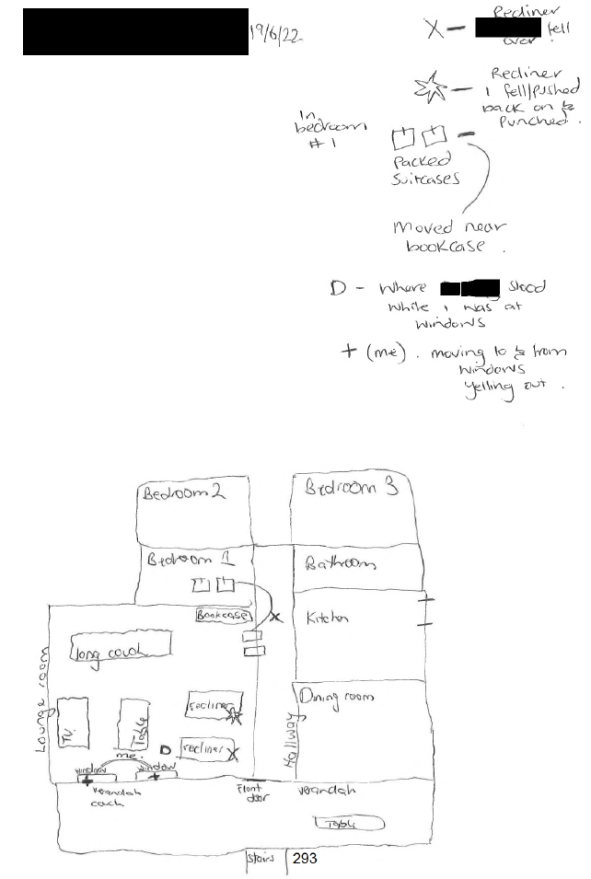 19/6/22
X — Recliner
fell
over.
— Recliner
I fell/pushed
back on to &
Punched.
In
bedroom
# 1
Packed
Suitcases
Moved near
bookcase.
D - Where stood
while I was at
windows
+ (me). moving to & from
windows
yelling out.
Bedroom 2
Bedroom 3
Bedroom 1
Bathroom
Bookcase
X
Kitchen
long couch
Lounge room
Dining room
recliner
T.V.
Table
Hallway
me.
D
recliner
X
window
window
+
+
Verandah
couch
Front
door
verandah
Table
Stairs
293